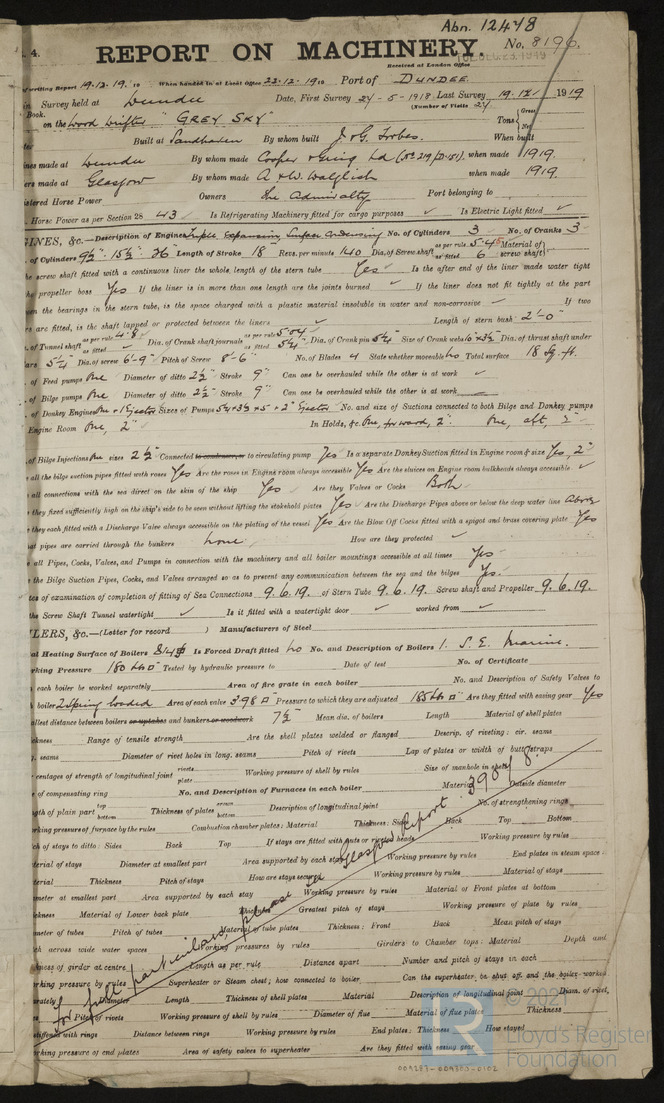 Abn. 12478
4.
REPORT ON MACHINERY. No. 8196.
Received at London Office
of writing Report 19.12.19. 19 When handed in at Local Office 22.12.1919 Port of DUNDEE
in Survey held at Dundee Date, First Survey 27-5-1918 Last Survey 19.12. 1919
Book. (Number of Visits 27
on the Wood Drifter "GREY SKY" Tons { Gross Net
Built at Sandhaven By whom built J & G. Forbes. When built
ines made at Dundee By whom made Cooper & Greig Ld (No 219/D.151), when made 1919.
ers made at Glasgow By whom made A & W. Dalglish when made 1919.
istered Horse Power Owners The Admiralty Port belonging to
Horse Power as per Section 28 43 Is Refrigerating Machinery fitted for cargo purposes ✓ Is Electric Light fitted ✓
GINES, &c.—Description of Engines Triple Expansion Surface Condensing No. of Cylinders 3 No. of Cranks 3
. of Cylinders 9½" 15½" 26" Length of Stroke 18" Revs. per minute 140 Dia. of Screw shaft as per rule 5.45 as fitted 6 Material of screw shaft
he screw shaft fitted with a continuous liner the whole length of the stern tube Yes Is the after end of the liner made water tight
the propeller boss Yes If the liner is in more than one length are the joints burned ✓ If the liner does not fit tightly at the part
en the bearings in the stern tube, is the space charged with a plastic material insoluble in water and non-corrosive ✓ If two
rs are fitted, is the shaft lapped or protected between the liners ✓ Length of stern bush 2'-0"
. of Tunnel shaft as per rule 4.8 as fitted Dia. of Crank shaft journals as per rule 5.04 as fitted 5¼ Dia. of Crank pin 5¼ Size of Crank webs 10"x3½ Dia. of thrust shaft under
lars 5¼ Dia. of screw 6'-9" Pitch of Screw 8'-6" No. of Blades 4 State whether moveable No Total surface 18 Sq. ft.
of Feed pumps One Diameter of ditto 2½ Stroke 9" Can one be overhauled while the other is at work ✓
of Bilge pumps One Diameter of ditto 2½ Stroke 9" Can one be overhauled while the other is at work
of Donkey Engines One + 1 Ejector Sizes of Pumps 5¼x3½x5 + 2" Ejector No. and size of Suctions connected to both Bilge and Donkey pumps
Engine Room One, 2" In Holds, &c. One, forward, 2". One, aft, 2"
of Bilge Injections One sizes 2½ Connected to condenser, or to circulating pump Yes Is a separate Donkey Suction fitted in Engine room & size Yes, 2"
all the bilge suction pipes fitted with roses Yes Are the roses in Engine room always accessible Yes Are the sluices on Engine room bulkheads always accessible ✓
all connections with the sea direct on the skin of the ship Yes Are they Valves or Cocks Both
they fixed sufficiently high on the ship's side to be seen without lifting the stokehold plates Yes Are the Discharge Pipes above or below the deep water line Above
they each fitted with a Discharge Valve always accessible on the plating of the vessel Yes Are the Blow Off Cocks fitted with a spigot and brass covering plate Yes
at pipes are carried through the bunkers None How are they protected ✓
all Pipes, Cocks, Valves, and Pumps in connection with the machinery and all boiler mountings accessible at all times Yes
the Bilge Suction Pipes, Cocks, and Valves arranged so as to prevent any communication between the sea and the bilges Yes.
tes of examination of completion of fitting of Sea Connections 9.6.19. of Stern Tube 9.6.19. Screw shaft and Propeller 9.6.19.
the Screw Shaft Tunnel watertight ✓ Is it fitted with a watertight door ✓ worked from ✓
LERS, &c.—(Letter for record ) Manufacturers of Steel
al Heating Surface of Boilers Is Forced Draft fitted No No. and Description of Boilers 1. S.E. Marine.
rking Pressure 180 lbs □" Tested by hydraulic pressure to Date of test No. of Certificate
each boiler be worked separately Area of fire grate in each boiler No. and Description of Safety Valves to
boiler 2 Spring loaded Area of each valve 3.98 □" Pressure to which they are adjusted 185 lbs □" Are they fitted with easing gear Yes
allest distance between boilers or uptakes and bunkers or woodwork 7½" Mean dia. of boilers Length Material of shell plates
ckness Range of tensile strength Are the shell plates welded or flanged Descrip. of riveting: cir. seams
. seams Diameter of rivet holes in long. seams Pitch of rivets Lap of plates or width of butt straps
centages of strength of longitudinal joint rivets plate Working pressure of shell by rules Size of manhole in shell
of compensating ring No. and Description of Furnaces in each boiler Material Outside diameter
gth of plain part top bottom Thickness of plates crown bottom Description of longitudinal joint No. of strengthening rings
rking pressure of furnace by the rules Combustion chamber plates: Material Thickness: Sides Back Top Bottom
ch of stays to ditto: Sides Back Top If stays are fitted with nuts or riveted heads Working pressure by rules
terial of stays Diameter at smallest part Area supported by each stay Working pressure by rules End plates in steam space:
terial Thickness Pitch of stays How are stays secured Working pressure by rules Material of stays
meter at smallest part Area supported by each stay Working pressure by rules Material of Front plates at bottom
ckness Material of Lower back plate Thickness Greatest pitch of stays Working pressure of plate by rules
meter of tubes Pitch of tubes Material of tube plates Thickness: Front Back Mean pitch of stays
ch across wide water spaces Working pressures by rules Girders to Chamber tops: Material Depth and
kness of girder at centre Length as per rule Distance apart Number and pitch of stays in each
rking pressure by rules Superheater or Steam chest; how connected to boiler Can the superheater be shut off and the boiler worked
rately Diameter Length Thickness of shell plates Material Description of longitudinal joint Diam. of rivet
Pitch of rivets Working pressure of shell by rules Diameter of flue Material of flue plates Thickness
stiffened with rings Distance between rings Working pressure by rules End plates: Thickness How stayed
rking pressure of end plates Area of safety valves to superheater Are they fitted with easing gear
For full particulars, please see Glasgow Report 39078.
© 2021
Lloyd's Register
Foundation
004287-004303-0102